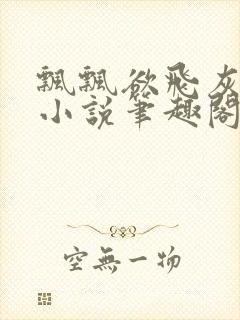 飄飄欲飛灰
小說筆趣閣
空無一物